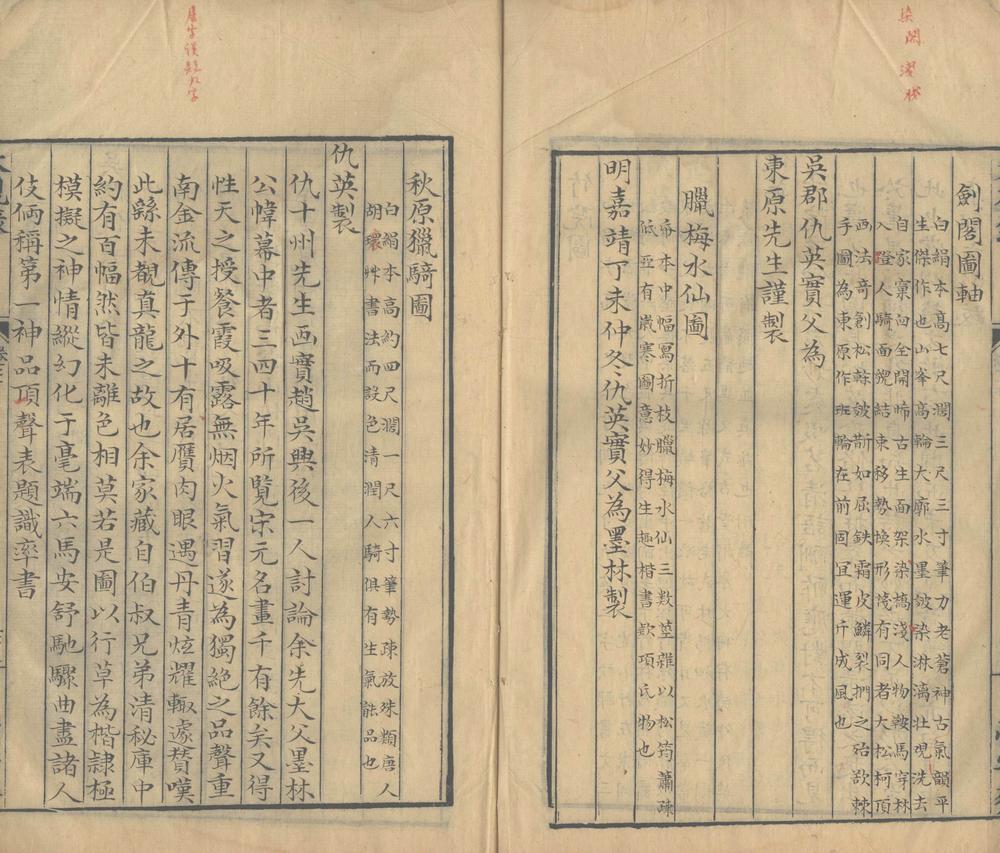 劍閣圖軸
白絹本高七尺濶三尺三寸筆力老蒼神古氣韻平
生傑作也山峯高輪大廓水墨皴染淋漓壯觀洗去
自家窠臼全開晞古生面架染橋淺人物鞍馬穿林
入磴人騎面貌結束移勢換形淺有同者大松柯頂
画法奇創松榦皴斯如屈鉄霜皮鱗裂捫之殆欲棘
手圖為東原作班輪在前固宜運斤成風也
吳郡仇英實父為
東原先生謹製
臘梅水仙圖
帋本中幅寫折枝臘梅水仙三數莖雜以松筠蕭疎
低亞有歲寒圖意妙得生趣楷書欵項氏物也
明嘉靖丁未仲冬仇英實父為墨林製
秋原獵騎圖
白絹本高約四尺濶一尺六寸筆勢疎放殊類唐人
胡瓌艸書法而設色清潤人騎俱有生氣能品也
仇英製
仇十州先生画實趙吳興後一人討論余先大父墨林
公幃幕中者三四十年所覧宋元名畫千有餘矣又得
性天之授餐霞吸露無烟火氣習遂為獨絶之品聲重
南金流傳于外十有居贋肉眼遇丹青炫耀輙遽賛嘆
此繇未覩真龍之故也余家藏自伯叔兄弟清秘庫中
約有百幅然皆未離色相莫若是圖以行草為楷隷極
模擬之神情縱幻化于毫端六馬安舒馳驟曲盡諸人
伎倆稱第一神品頂聲表題識率書